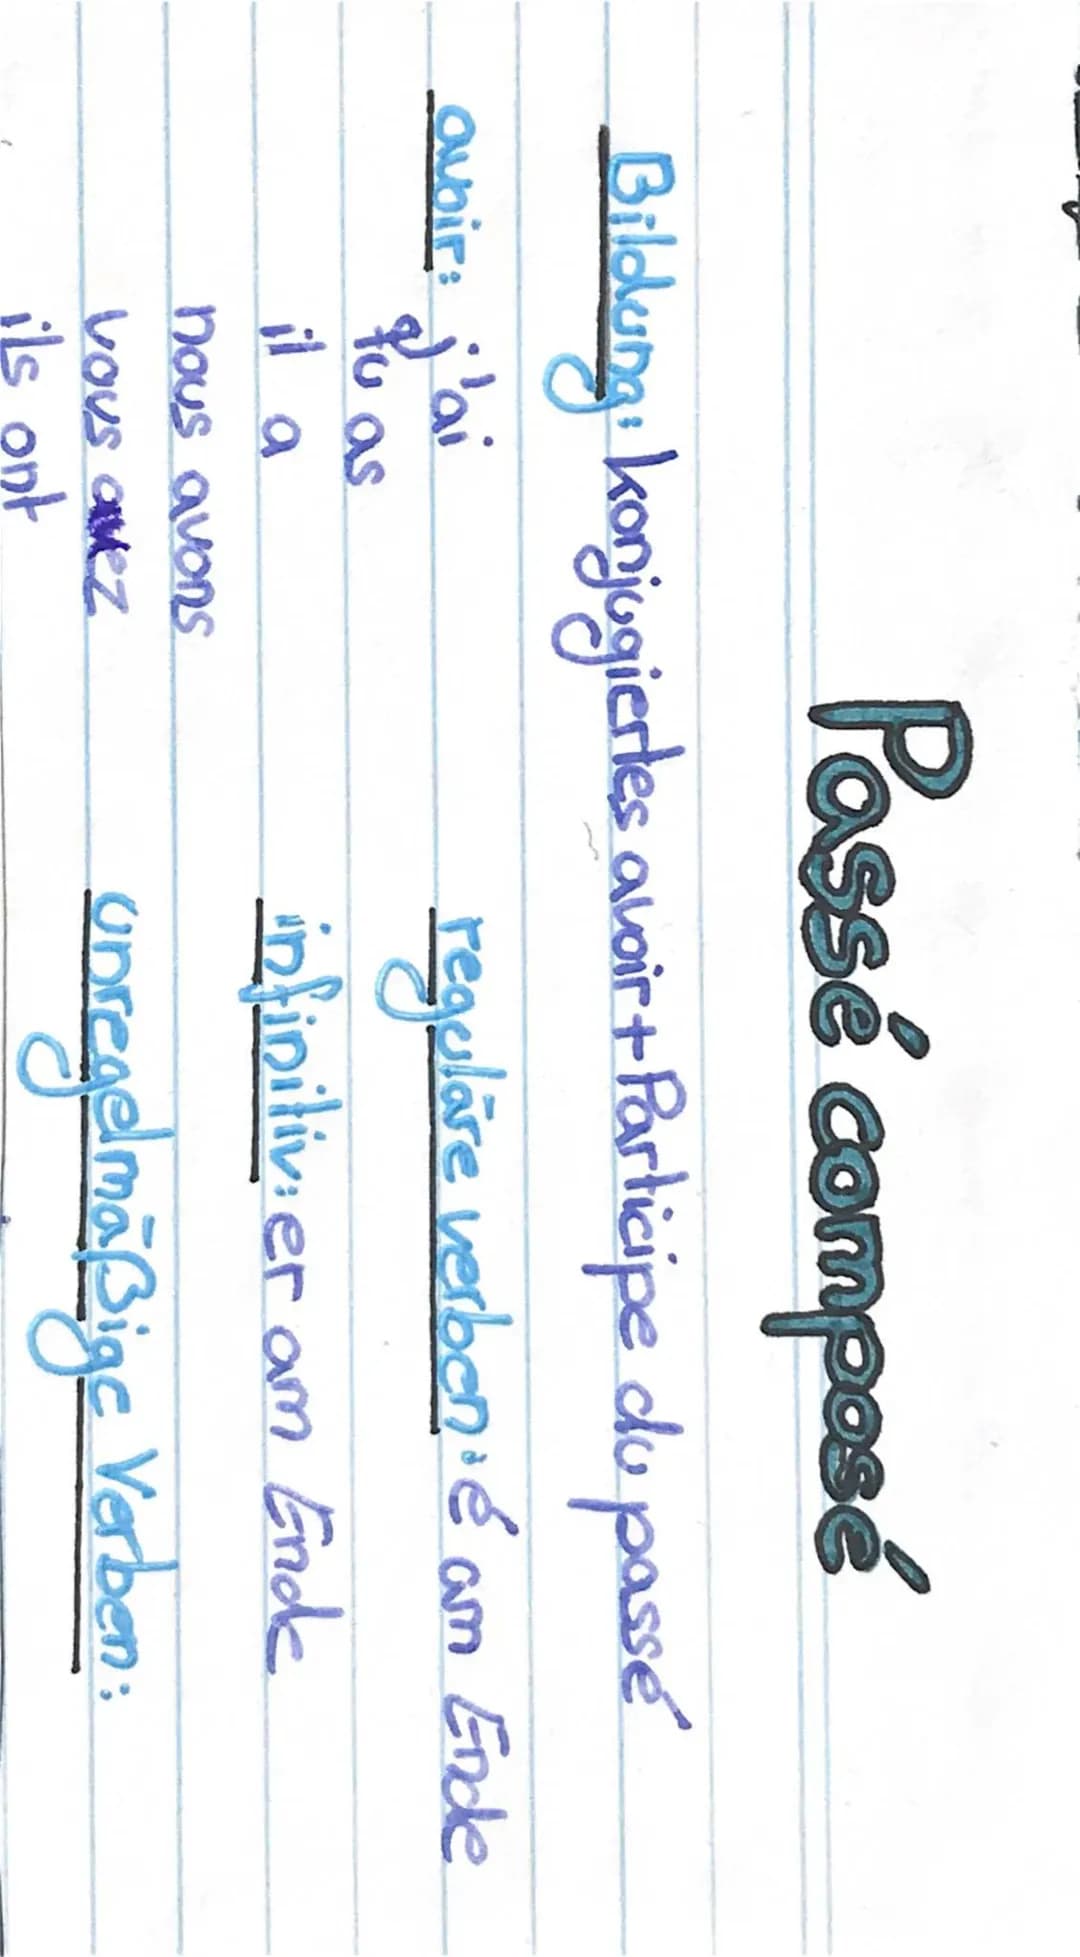 Passé composé
Bildung: konjugiertes avoir + Participe du passé
avoir: j'ai
tu as
il a
nous avons
vous avez
ils ont
reguläre verben: é am Ende
infinitiv: er am Ende
unregelmäßige Verben: